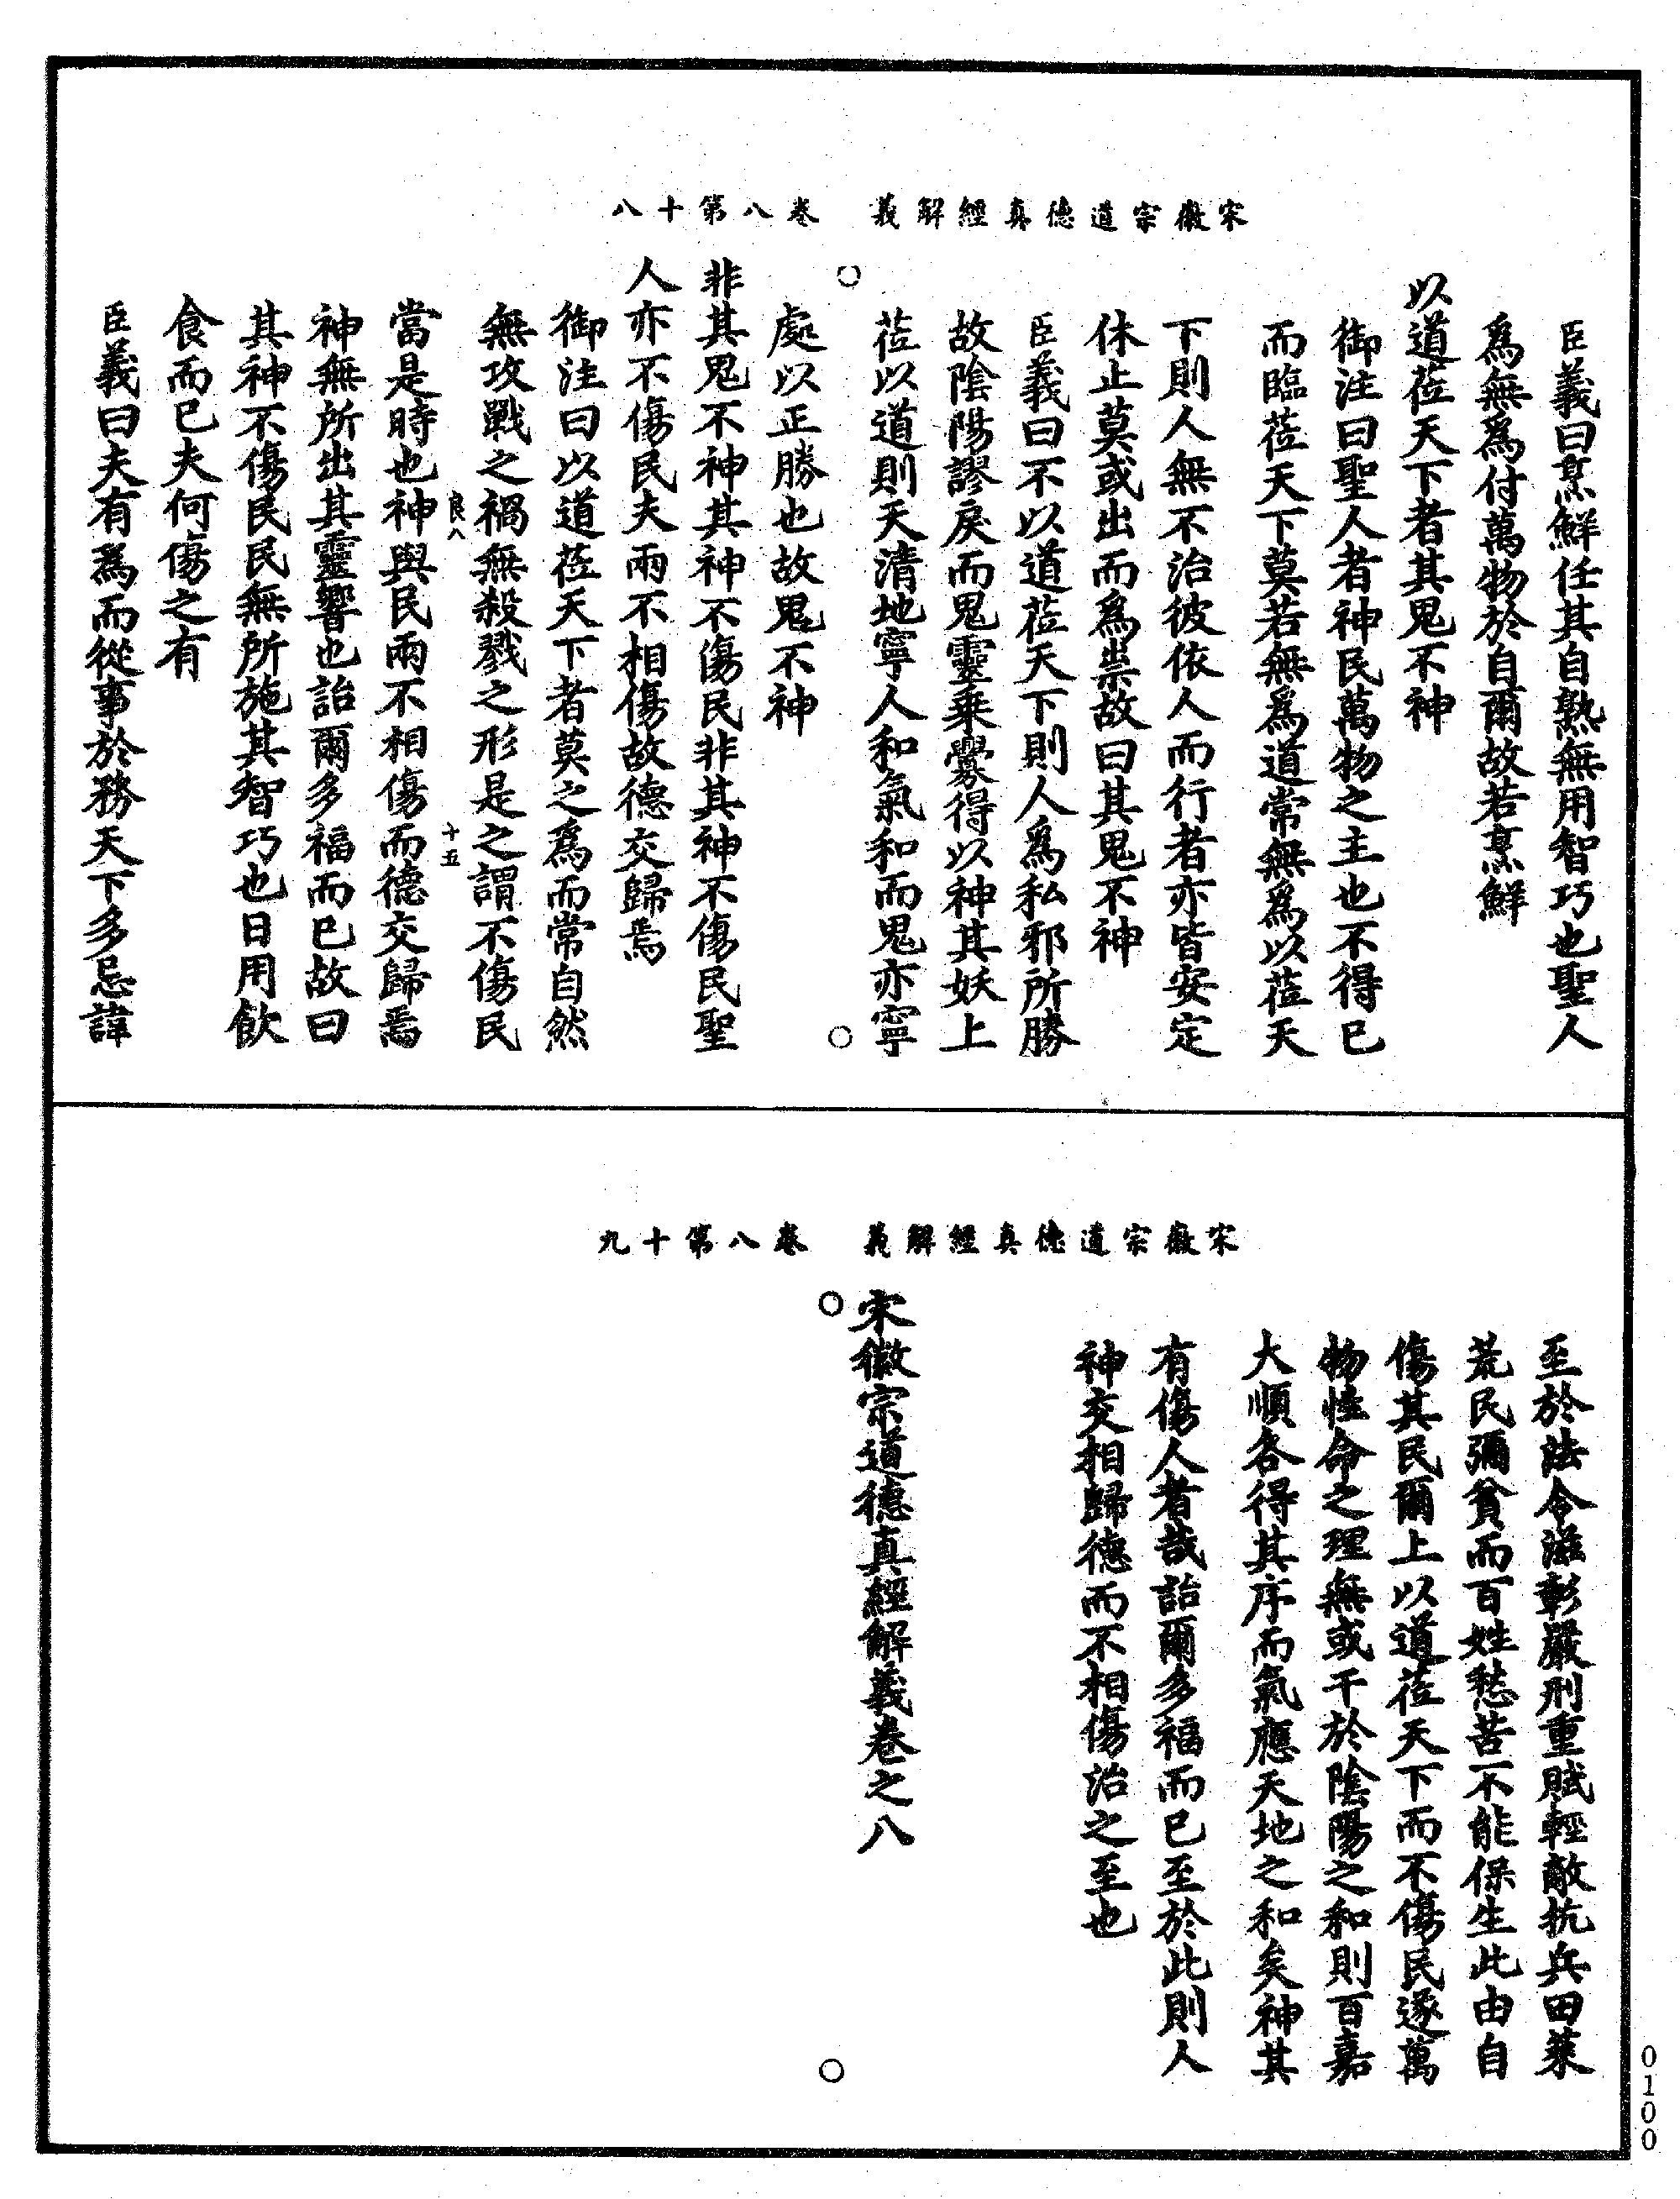 宋徽宗道德真經解義　卷八第十八
臣義曰烹鮮任其自熟無用智巧也聖人
爲無爲付萬物於自爾故若烹鮮
以道莅天下者其鬼不神
御注曰聖人者神民萬物之主也不得已
而臨莅天下莫若無爲道常無爲以莅天
下則人無不治彼依人而行者亦皆安定
休止莫或出而爲祟故曰其鬼不神
臣義曰不以道莅天下則人爲私邪所勝
故陰陽謬戾而鬼靈乗釁得以神其妖上
莅以道則天清地寧人和氣和而鬼亦寧
處以正勝也故鬼不神
非其鬼不神其神不傷民非其神不傷民聖
人亦不傷民夫兩不相傷故德交歸焉
御注曰以道莅天下者莫之爲而常自然
無攻戰之禍無殺戮之形是之謂不傷民
良八　十五
當是時也神與民兩不相傷而德交歸焉
神無所出其靈響也詒爾多福而已故曰
其神不傷民民無所施其智巧也日用飲
食而已夫何傷之有
臣義曰夫有爲而從事於務天下多忌諱
宋徽宗道德真經解義　卷八第十九
至於法令滋彰嚴刑重賦輕敵抗兵田萊
荒民彌貧而百姓愁苦不能保生此由自
傷其民爾上以道莅天下而不傷民遂萬
物性命之理無或干於陰陽之和則百嘉
大順各得其序而氣應天地之和矣神其
有傷人者哉詒爾多福而已至於此則人
神交相歸德而不相傷治之至也
宋徽宗道德真經解義卷之八
0100